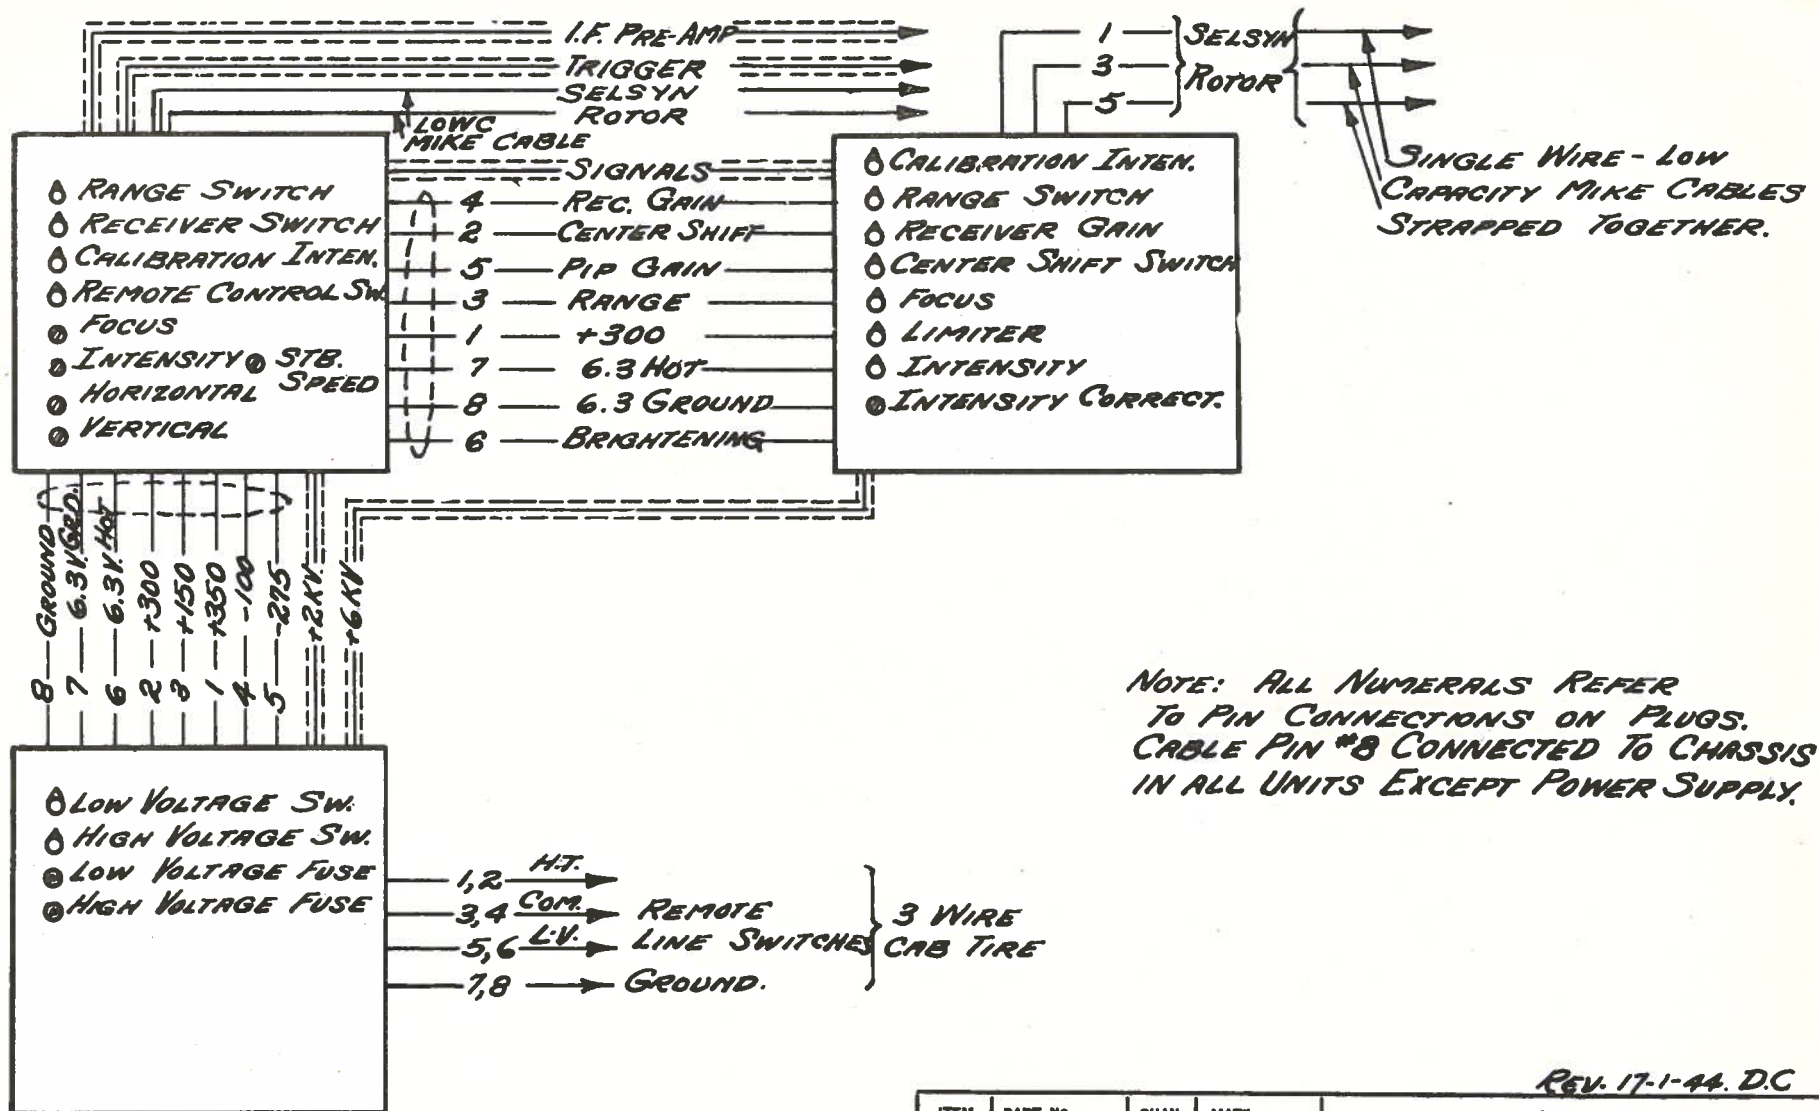 I.F. PRE-AMP
TRIGGER
SELSYN
ROTOR
LOW C
MIKE CABLE
1
3
5
SELSYN
ROTOR
SINGLE WIRE - LOW
CAPACITY MIKE CABLES
STRAPPED TOGETHER.
RANGE SWITCH
RECEIVER SWITCH
CALIBRATION INTEN.
REMOTE CONTROL SW.
FOCUS
INTENSITY STB.
SPEED
HORIZONTAL
VERTICAL
SIGNALS
4 REC. GAIN
2 CENTER SHIFT
5 PIP GAIN
3 RANGE
1 +300
7 6.3 HOT
8 6.3 GROUND
6 BRIGHTENING
CALIBRATION INTEN.
RANGE SWITCH
RECEIVER GAIN
CENTER SHIFT SWITCH
FOCUS
LIMITER
INTENSITY
INTENSITY CORRECT.
8 GROUND
7 6.3V. GRD.
6 6.3V. HOT
2 +300
3 +150
1 +350
4 -100
5 -275
+2KV.
+6KV.
NOTE: ALL NUMERALS REFER
TO PIN CONNECTIONS ON PLUGS.
CABLE PIN #8 CONNECTED TO CHASSIS
IN ALL UNITS EXCEPT POWER SUPPLY.
LOW VOLTAGE SW.
HIGH VOLTAGE SW.
LOW VOLTAGE FUSE
HIGH VOLTAGE FUSE
1,2 H.T.
3,4 COM. REMOTE
5,6 L.V. LINE SWITCHES
7,8 GROUND.
3 WIRE
CAB TIRE
REV. 17-1-44. D.C